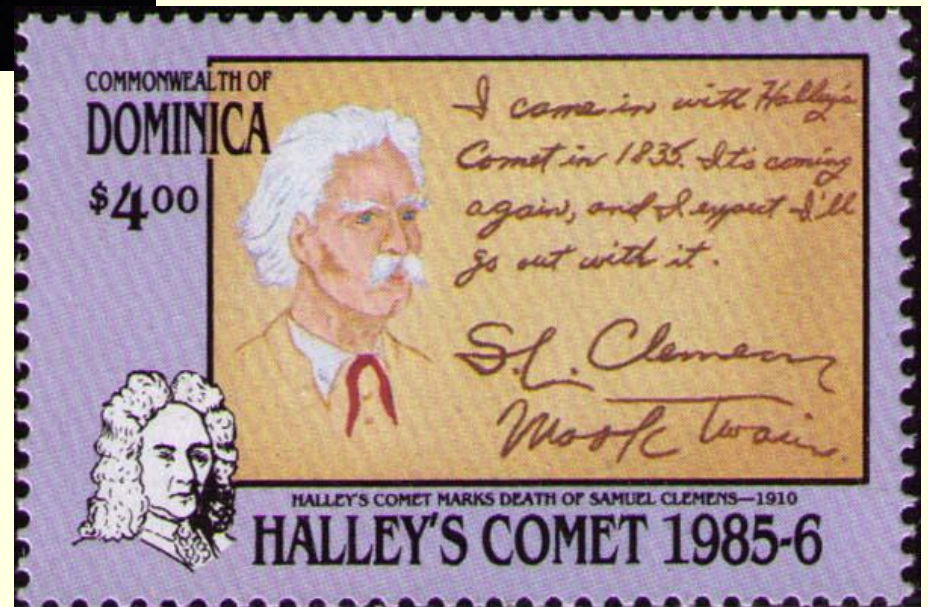 COMMONWEALTH OF
DOMINICA
$4.00
I came in with Halley's
Comet in 1835. It's coming
again, and I expect I'll
go out with it.
S.L. Clemens
Mark Twain.
HALLEY'S COMET MARKS DEATH OF SAMUEL CLEMENS—1910
HALLEY'S COMET 1985-6